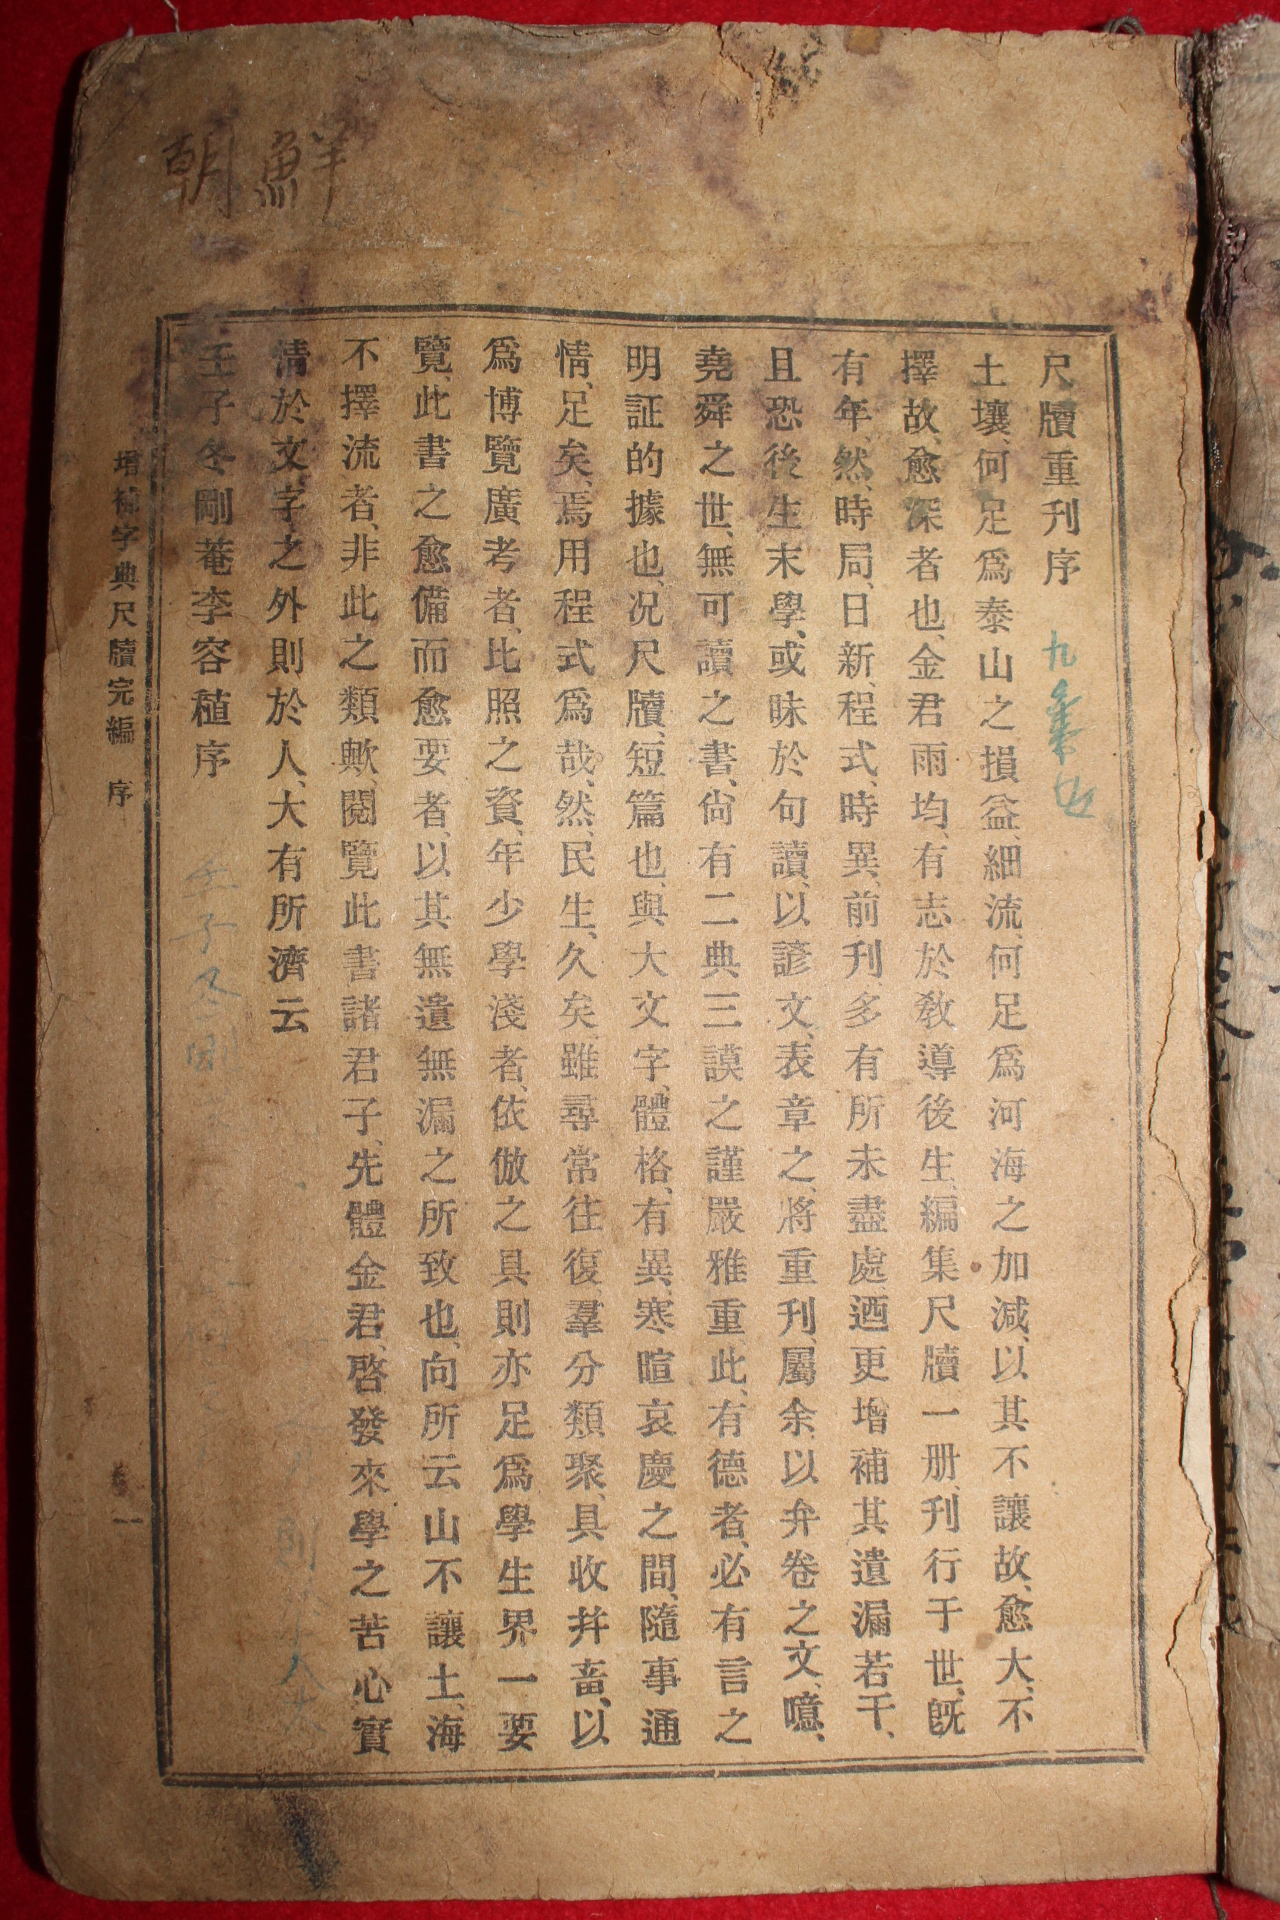 朝鮮
尺牘重刊序
土壤、何足爲泰山之損益、細流、何足爲河海之加減、以其不讓故、愈大、不
擇故、愈深者也、金君雨均、有志於敎導後生、編集尺牘一册、刊行于世、旣
有年、然、時局、日新、程式、時異、前刊、多有所未盡處迺更增補其遺漏若干、
且恐後生末學、或昧於句讀、以諺文、表章之、將重刊、屬余、以弁卷之文、噫、
堯舜之世、無可讀之書、尙有二典三謨之謹嚴雅重此、有德者、必有言之
明証的據也、况尺牘、短篇也、與大文字、體格、有異、寒暄哀慶之間、隨事通
情、足矣、焉用程式爲哉、然、民生、久矣、雖尋常往復、羣分類聚、具收幷畜、以
爲博覽廣考者、比照之資、年少學淺者、依倣之具則亦足爲學生界一要
覽、此書之愈備而愈要者、以其無遺無漏之所致也、向所云山不讓土、海
不擇流者、非此之類歟、閱覽此書諸君子、先體金君、啓發來學之苦心實
淸於文字之外則於人、大有所濟云
壬子冬剛菴李容稙序
增補字典尺牘完編 序
一